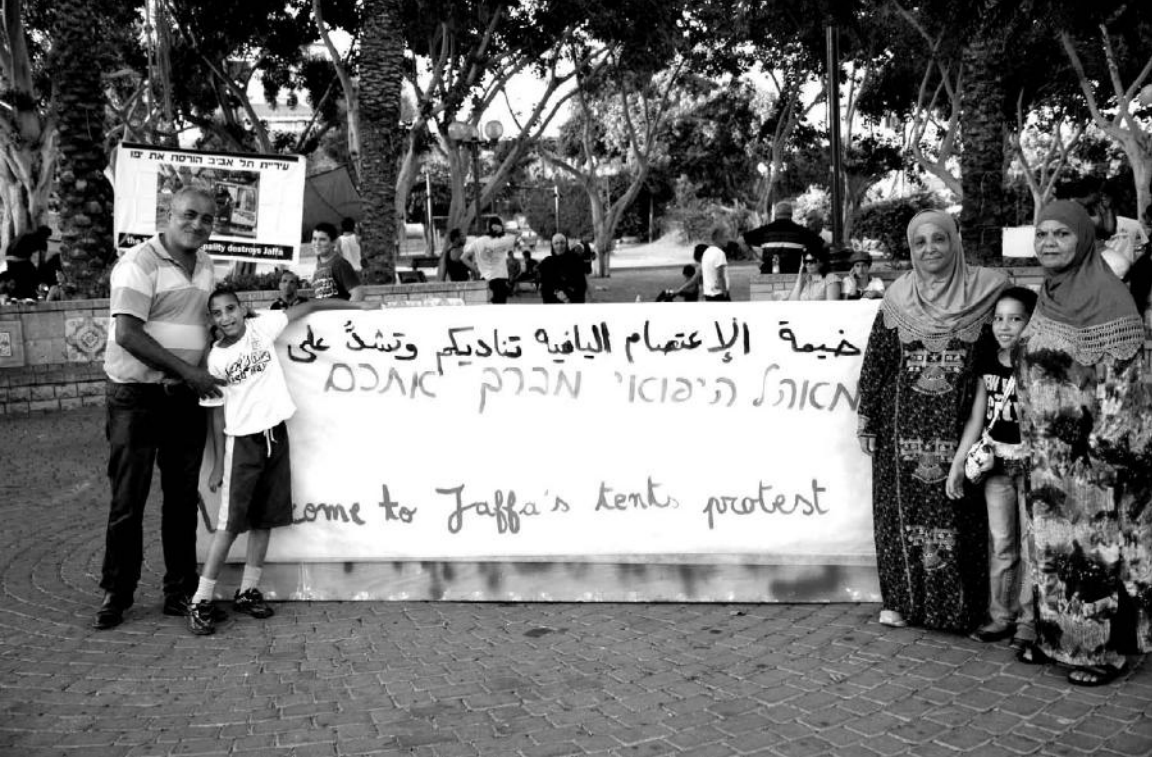 עיריית תל אביב הורסת את יפו
the pality destroys Jaffa
خيمة الإعتصام اليافيه تناديكم وتشدُّ على
מאוהל היפואי מברך אתכם
come to Jaffa's tents protest
NEW